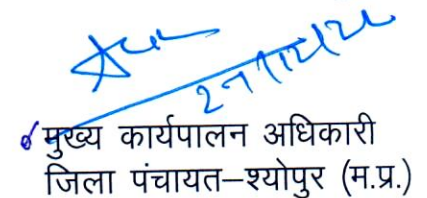 मुख्य कार्यपालन अधिकारी
जिला पंचायत–श्योपुर (म.प्र.)